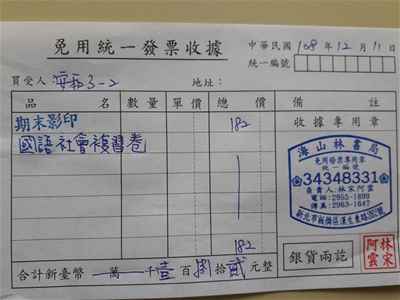 免用統一發票收據
中華民國 108年12月11日
統一編號
買受人 3-2 地址:
品名 數量 單價 總價 備註
期末影印 182 收據專用章
國語社會複習卷
海山林書局
免用發票專用章
統一編號
34348331
負責人:林宋阿雲
電話:2955-1899
傳真:2963-1647
182
銀貨兩訖
林宋阿雲
合計新臺幣 萬 仟壹佰捌拾貳元整